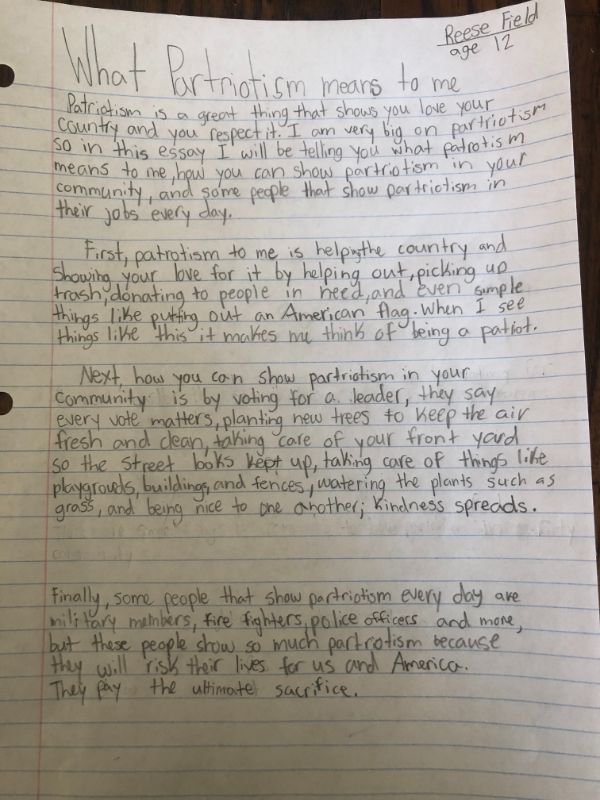 Reese Field
age 12
What Partriotism means to me
Patriotism is a great thing that shows you love your
country and you respect it. I am very big on partriotism
so in this essay I will be telling you what patrotism
means to me, how you can show partriotism in your
community, and some people that show partriotism in
their jobs every day.
First, patrotism to me is helping the country and
showing your love for it by helping out, picking up
trash, donating to people in need, and even simple
things like putting out an American flag. When I see
things like this it makes me think of being a patriot.
Next, how you can show partriotism in your
community is by voting for a leader, they say
every vote matters, planting new trees to keep the air
fresh and clean, taking care of your front yard
so the street looks kept up, taking care of things like
playgrouds, buildings, and fences, watering the plants such as
grass, and being nice to one another; kindness spreads.
Finally, some people that show partriotism every day are
military members, fire fighters, police officers and more,
but these people show so much partriotism because
they will risk their lives for us and America.
They pay the ultimate sacrifice.